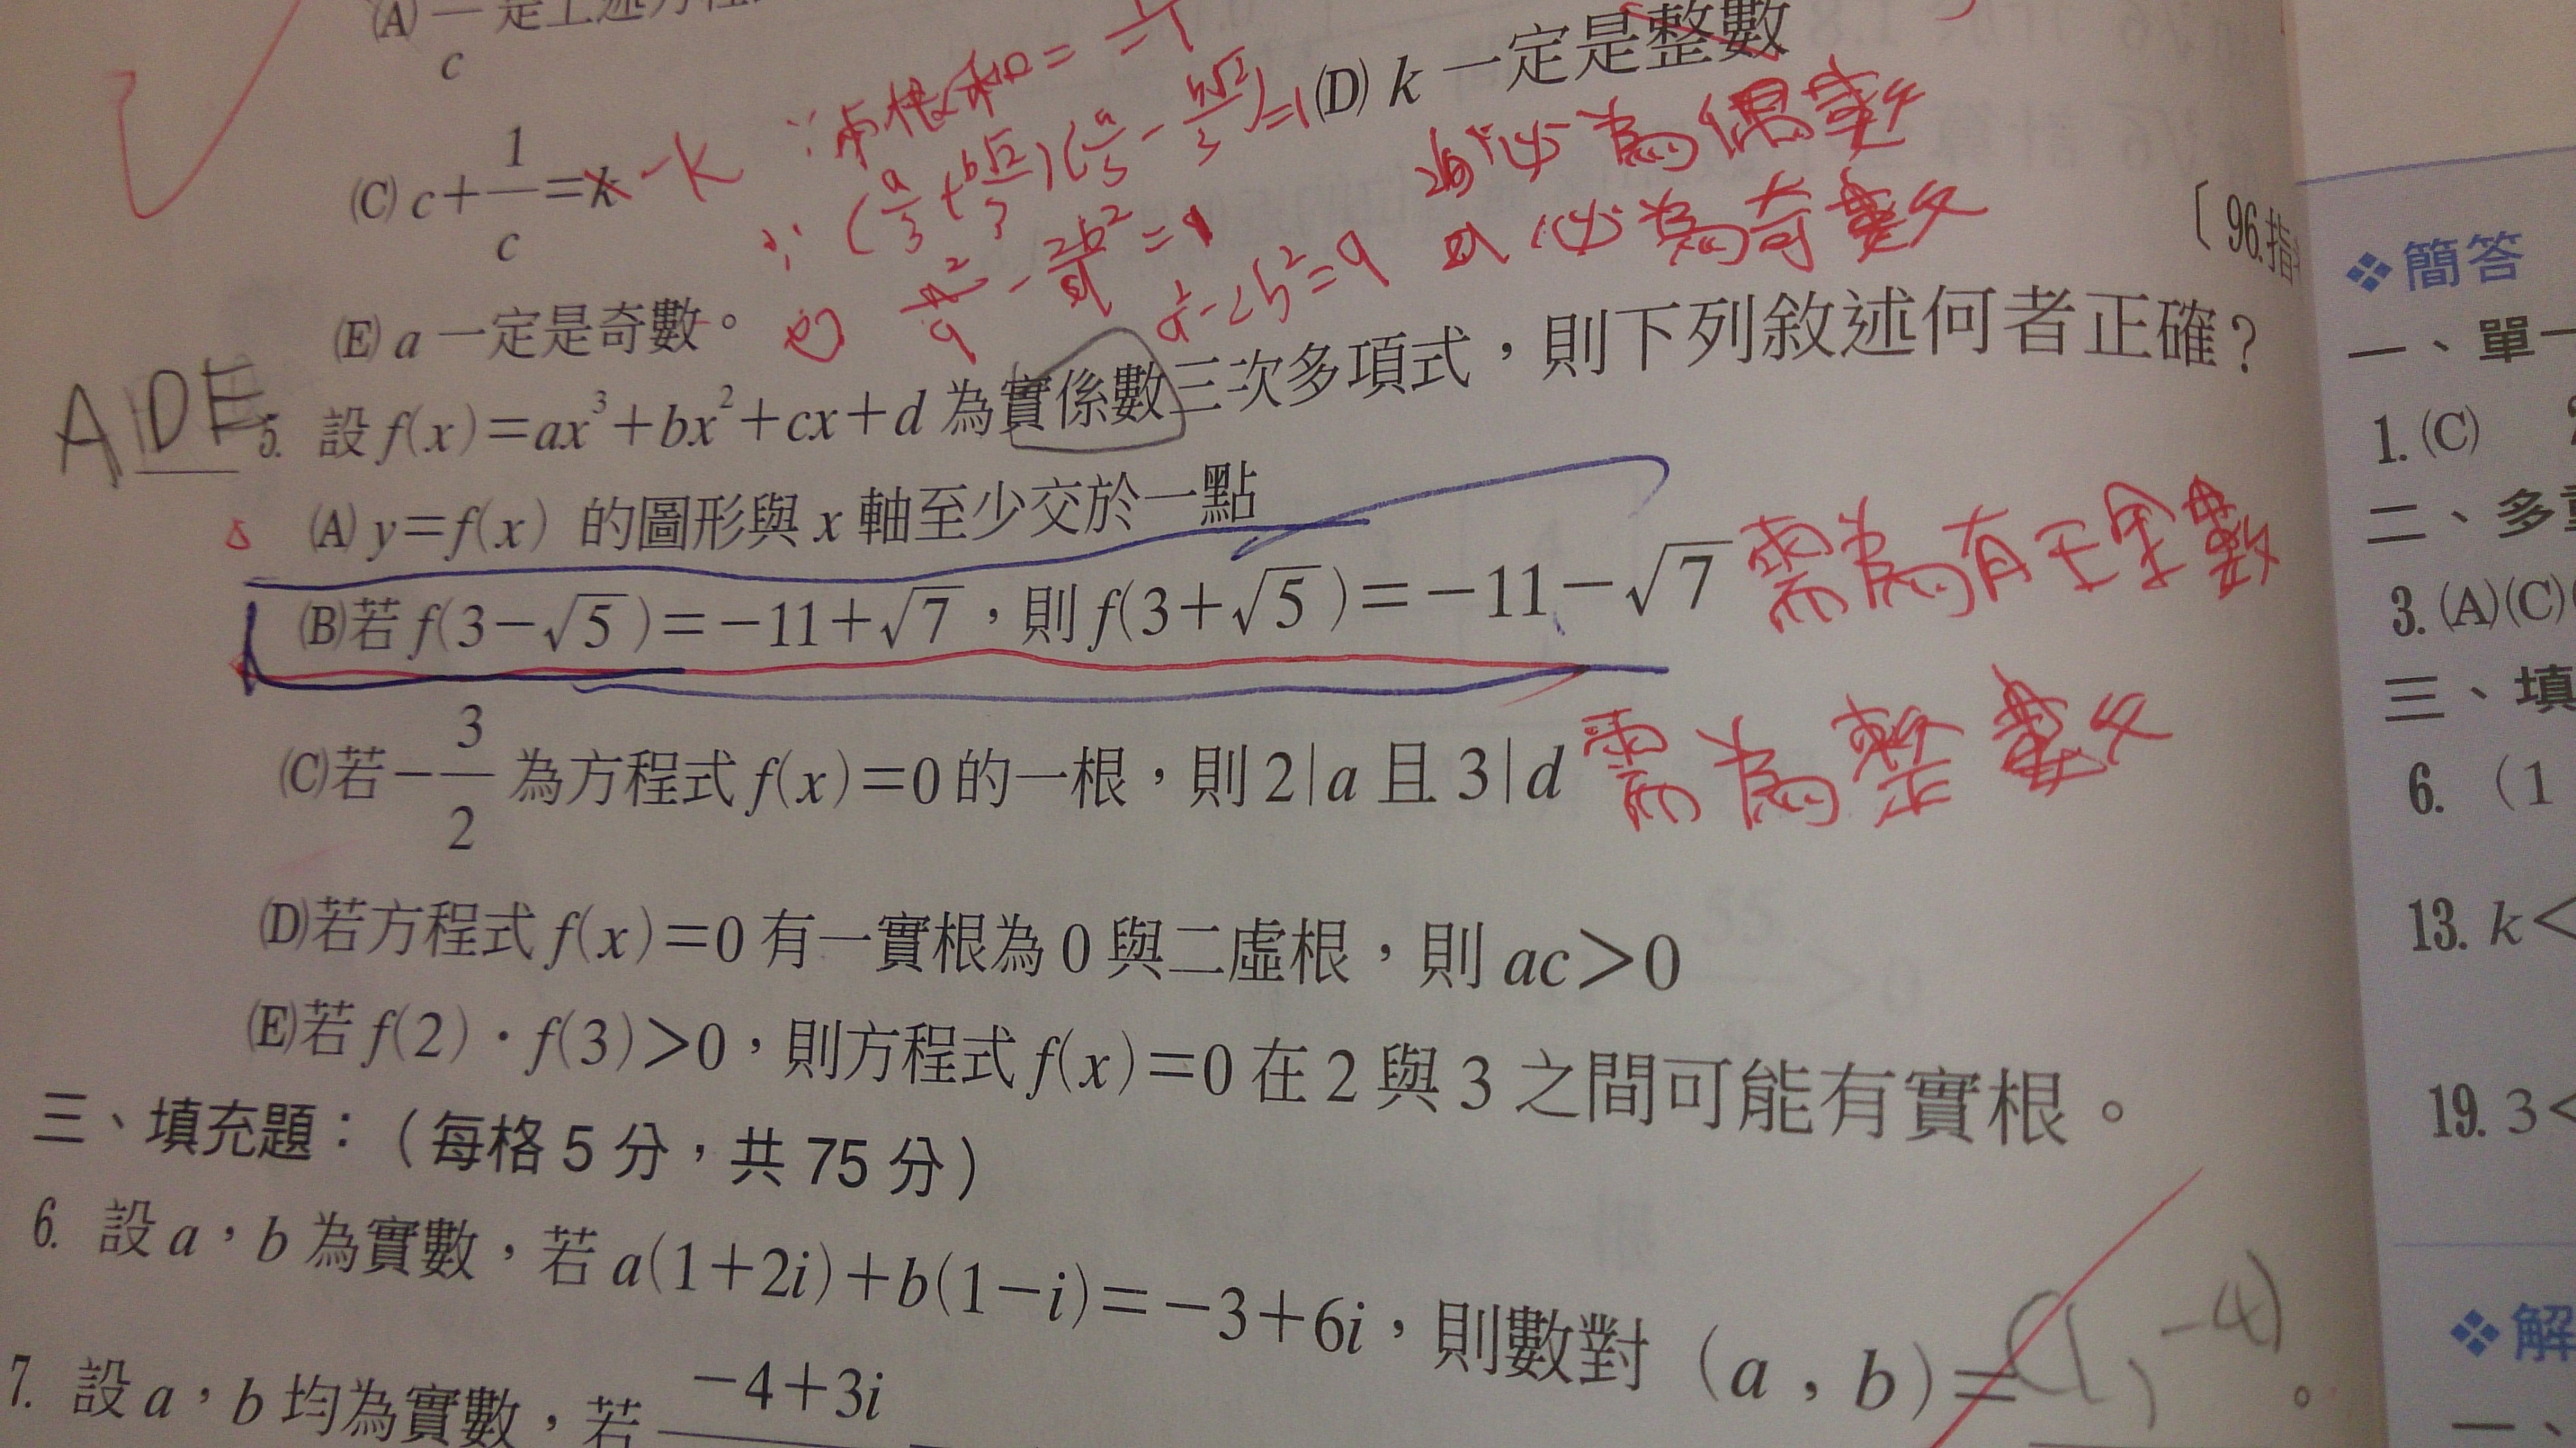 (A) — 是上述方程
c
兩根和 = -1
(D) k 一定是整數
(C) c + 1/c = k -k
∴ (a/3 + b√2/3)(a/3 - b√2/3) = 1
必為偶數
a²/9 - 2b²/9 = 1
a² - 2b² = 9 a 必為奇數
(E) a 一定是奇數。
〔96.指
ADE
5. 設 f(x)=ax³+bx²+cx+d 為實係數三次多項式，則下列敘述何者正確？
(A) y=f(x) 的圖形與 x 軸至少交於一點
(B)若 f(3-√5)=-11+√7，則 f(3+√5)=-11-√7 需為有理數
(C)若 -3/2 為方程式 f(x)=0 的一根，則 2|a 且 3|d 需為整數
(D)若方程式 f(x)=0 有一實根為 0 與二虛根，則 ac>0
(E)若 f(2)·f(3)>0，則方程式 f(x)=0 在 2 與 3 之間可能有實根。
三、填充題：（每格 5 分，共 75 分）
6. 設 a，b 為實數，若 a(1+2i)+b(1-i)=-3+6i，則數對 (a，b)=(1, -4)。
7. 設 a，b 均為實數，若 -4+3i
❖簡答
一、單一
1. (C)
二、多重
3. (A)(C)
三、填
6. (1
13. k<
19. 3<
❖解
一、